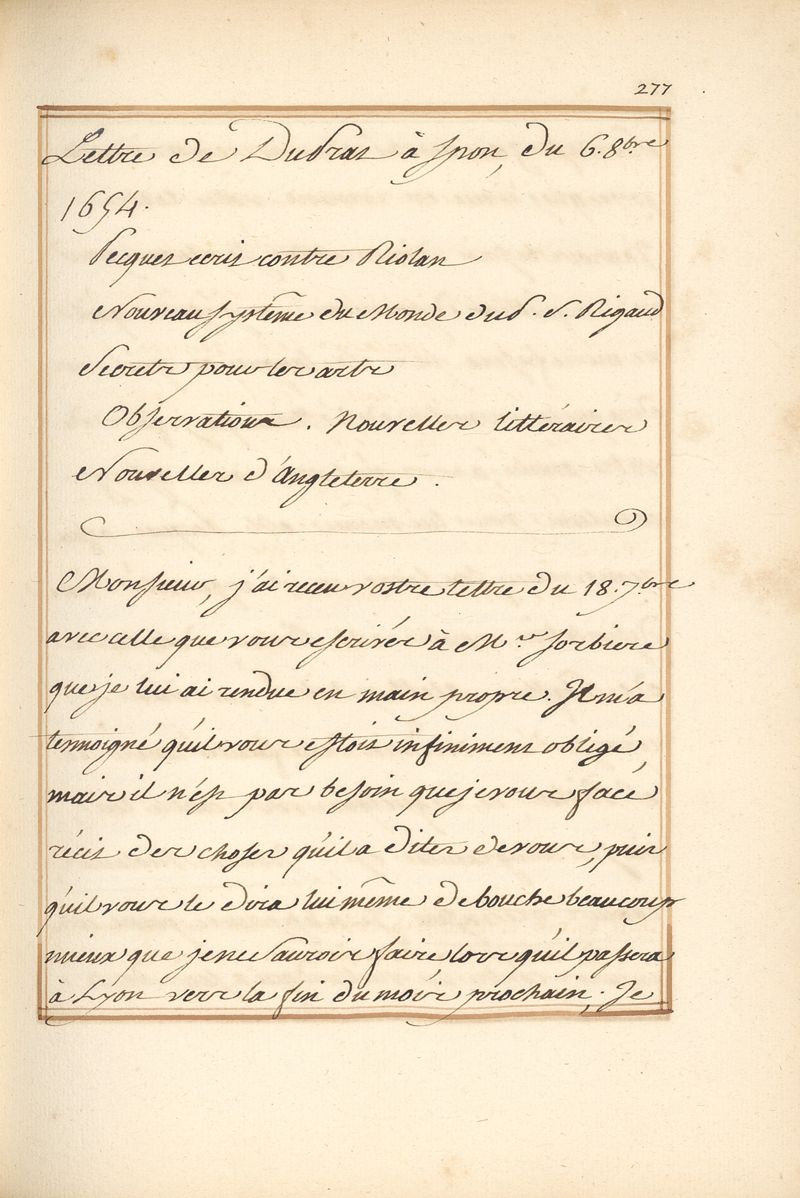 277
Lettre de Dubras à Spon, du 6. 8.bre
1654.
Pecquet ecrit contre Riolan
Nouveau Systême du Monde dud. S. Rigaud
Secrets pour les arts
Observations. Nouvelles littéraires
Nouvelles d'Angleterre.
Monsieur, j'ai receu vostre lettre du 18. 7.bre
avec celle que vous escrivés à M.r Sorbiere
que je lui ai rendue en main propre. Il m'a
temoigné qu'il vous estoit infiniment obligé,
mais il n'est pas besoin que je vous facé
récit des choses qu'il a dites de vous, puis
qu'il vous le dira lui même de bouche beaucoup
mieux que je ne saurois faire lors qu'il passera
à Lyon vers la fin du mois prochain. Je